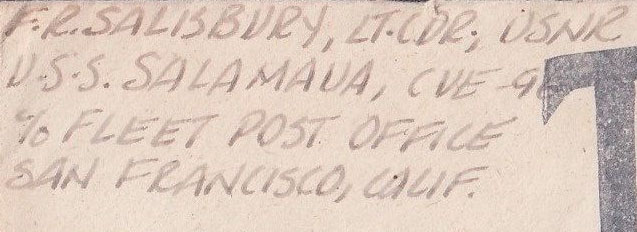 F.R. SALISBURY, LT. CDR; USNR
U.S.S. SALAMAUA, CVE-96
℅ FLEET POST OFFICE
SAN FRANCISCO, CALIF.